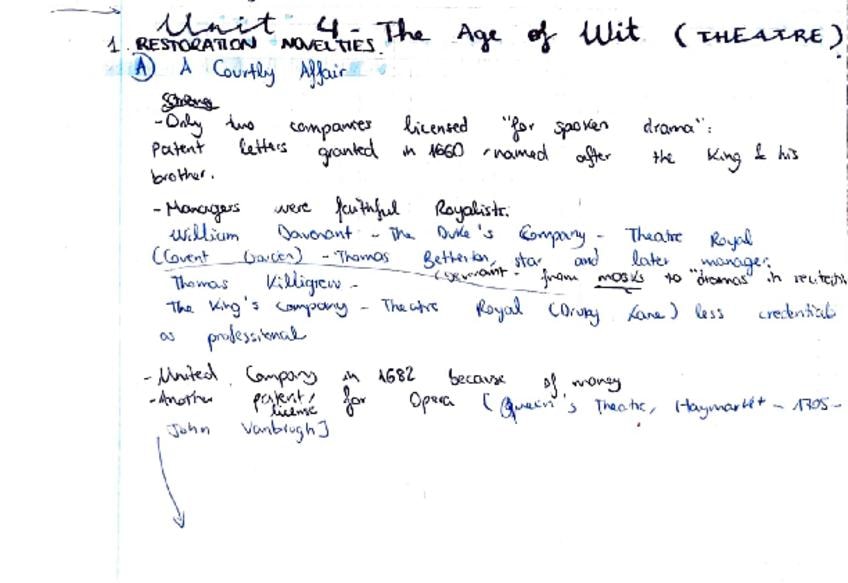 Unit 4 - The Age of Wit (THEATRE)
1. RESTORATION NOVELTIES.
A) A Courtly Affair
Strong
- Only two companies licensed "for spoken drama":
Patent letters granted in 1660 - named after the King & his
brother.
- Managers were faithful Royalists:
William Davenant - The Duke's Company - Theatre Royal
(Covent Garden) - Thomas Betterton, star and later manager.
Davenant - from masks to "dramas" in recitativ
Thomas Killigrew -
The King's Company - Theatre Royal (Drury Lane) less credentials
as professional
- United Company in 1682 because of money
- Another patent/license for Opera (Queen's Theatre, Haymarket - 1705 -
John Vanbrugh]